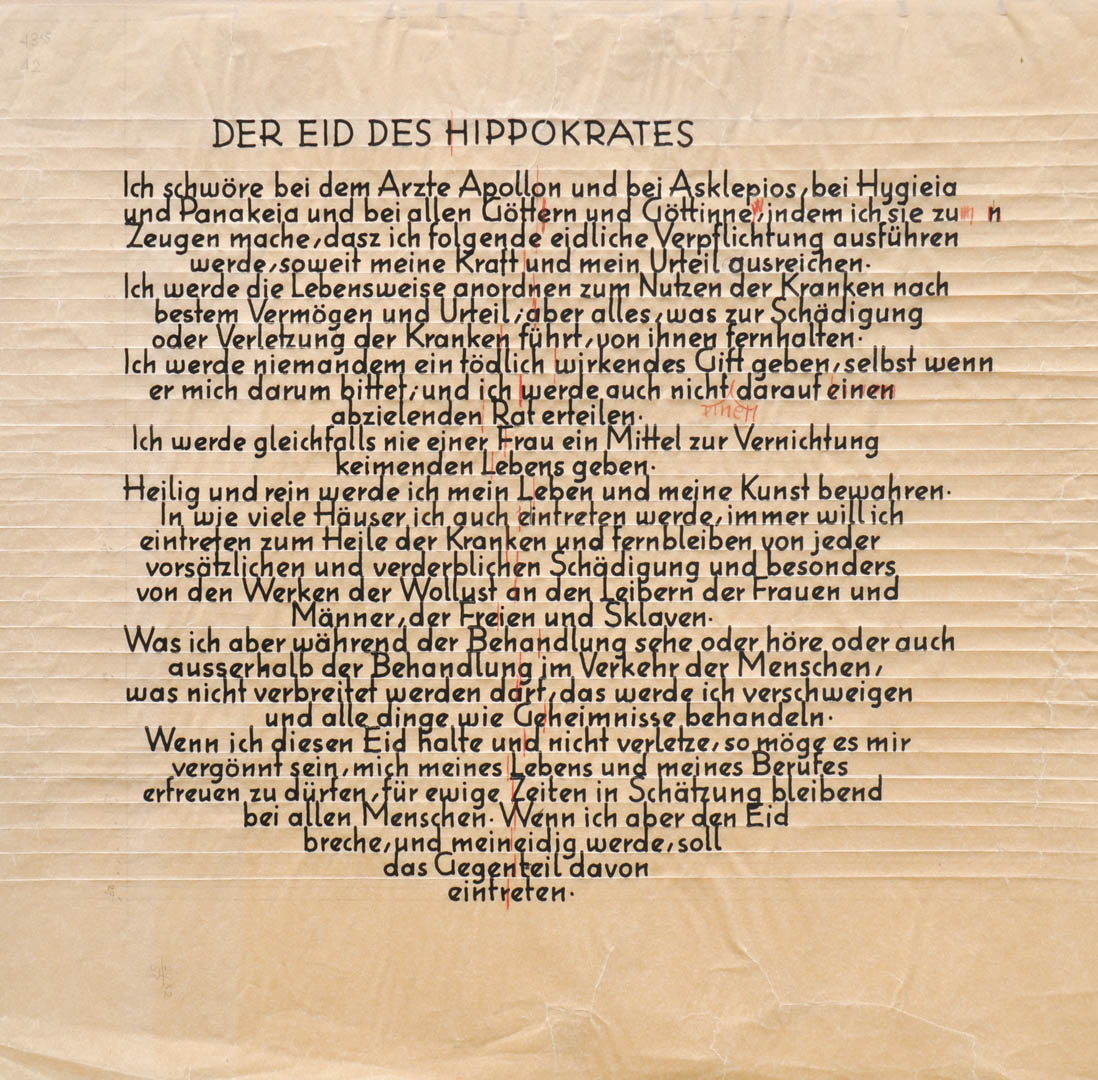 13·5
12
DER EID DES HIPPOKRATES
Ich schwöre bei dem Arzte Apollon und bei Asklepios, bei Hygieia
und Panakeia und bei allen Göttern und Göttinne, indem ich sie zu n
Zeugen mache, dasz ich folgende eidliche Verpflichtung ausführen
werde, soweit meine Kraft und mein Urteil ausreichen.
Ich werde die Lebensweise anordnen zum Nutzen der Kranken nach
bestem Vermögen und Urteil; aber alles, was zur Schädigung
oder Verletzung der Kranken führt, von ihnen fernhalten.
Ich werde niemandem ein tödlich wirkendes Gift geben, selbst wenn
er mich darum bittet; und ich werde auch nicht darauf einen
einen
abzielenden Rat erteilen.
Ich werde gleichfalls nie einer Frau ein Mittel zur Vernichtung
keimenden Lebens geben.
Heilig und rein werde ich mein Leben und meine Kunst bewahren.
In wie viele Häuser ich auch eintreten werde, immer will ich
eintreten zum Heile der Kranken und fernbleiben von jeder
vorsätzlichen und verderblichen Schädigung und besonders
von den Werken der Wollust an den Leibern der Frauen und
Männer, der Freien und Sklaven.
Was ich aber während der Behandlung sehe oder höre oder auch
ausserhalb der Behandlung im Verkehr der Menschen,
was nicht verbreitet werden darf, das werde ich verschweigen
und alle dinge wie Geheimnisse behandeln.
Wenn ich diesen Eid halte und nicht verletze, so möge es mir
vergönnt sein, mich meines Lebens und meines Berufes
erfreuen zu dürfen, für ewige Zeiten in Schätzung bleibend
bei allen Menschen. Wenn ich aber den Eid
breche, und meineidig werde, soll
das Gegenteil davon
eintreten.